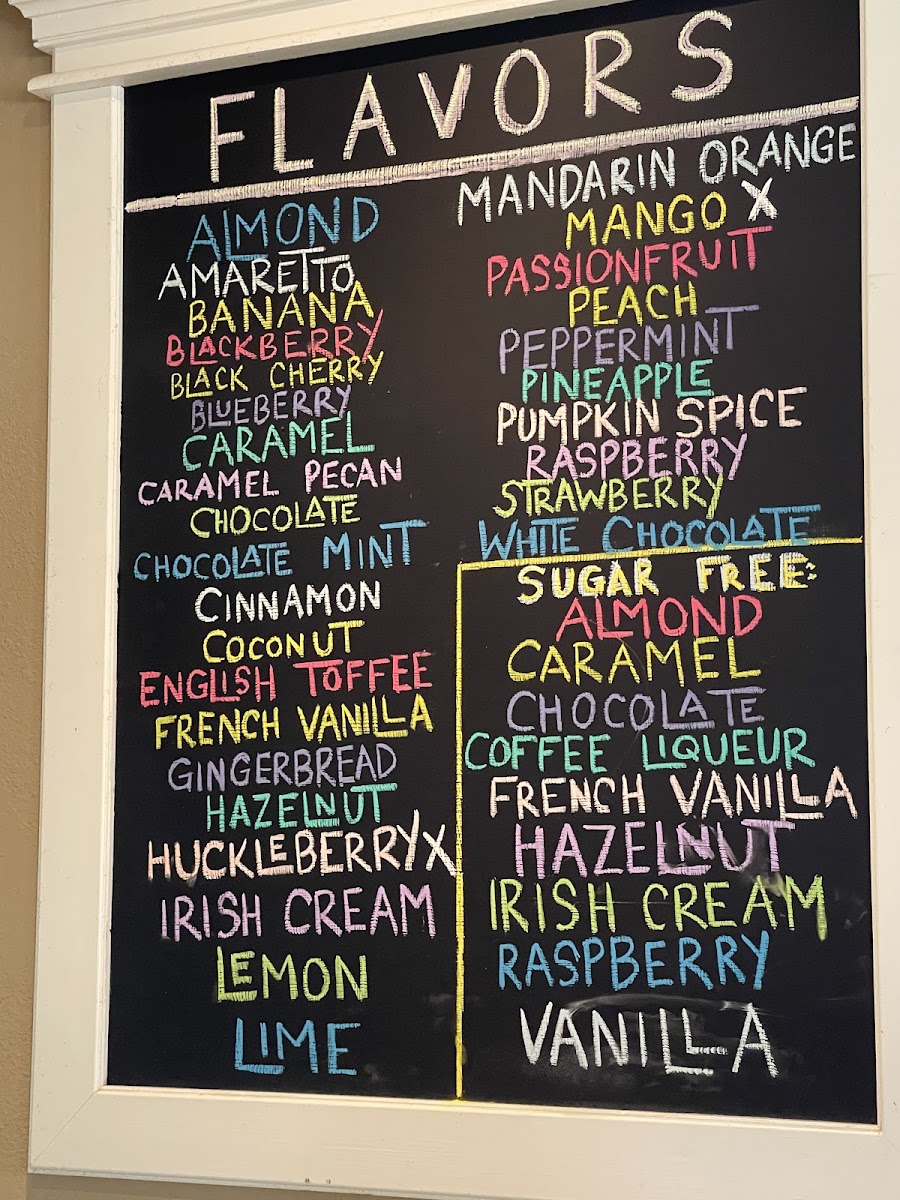 FLAVORS
ALMOND
AMARETTO
BANANA
BLACKBERRY
BLACK CHERRY
BLUEBERRY
CARAMEL
CARAMEL PECAN
CHOCOLATE
CHOCOLATE MINT
CINNAMON
COCONUT
ENGLISH TOFFEE
FRENCH VANILLA
GINGERBREAD
HAZELNUT
HUCKLEBERRY X
IRISH CREAM
LEMON
LIME
MANDARIN ORANGE
MANGO X
PASSIONFRUIT
PEACH
PEPPERMINT
PINEAPPLE
PUMPKIN SPICE
RASPBERRY
STRAWBERRY
WHITE CHOCOLATE
SUGAR FREE:
ALMOND
CARAMEL
CHOCOLATE
COFFEE LIQUEUR
FRENCH VANILLA
HAZELNUT
IRISH CREAM
RASPBERRY
VANILLA